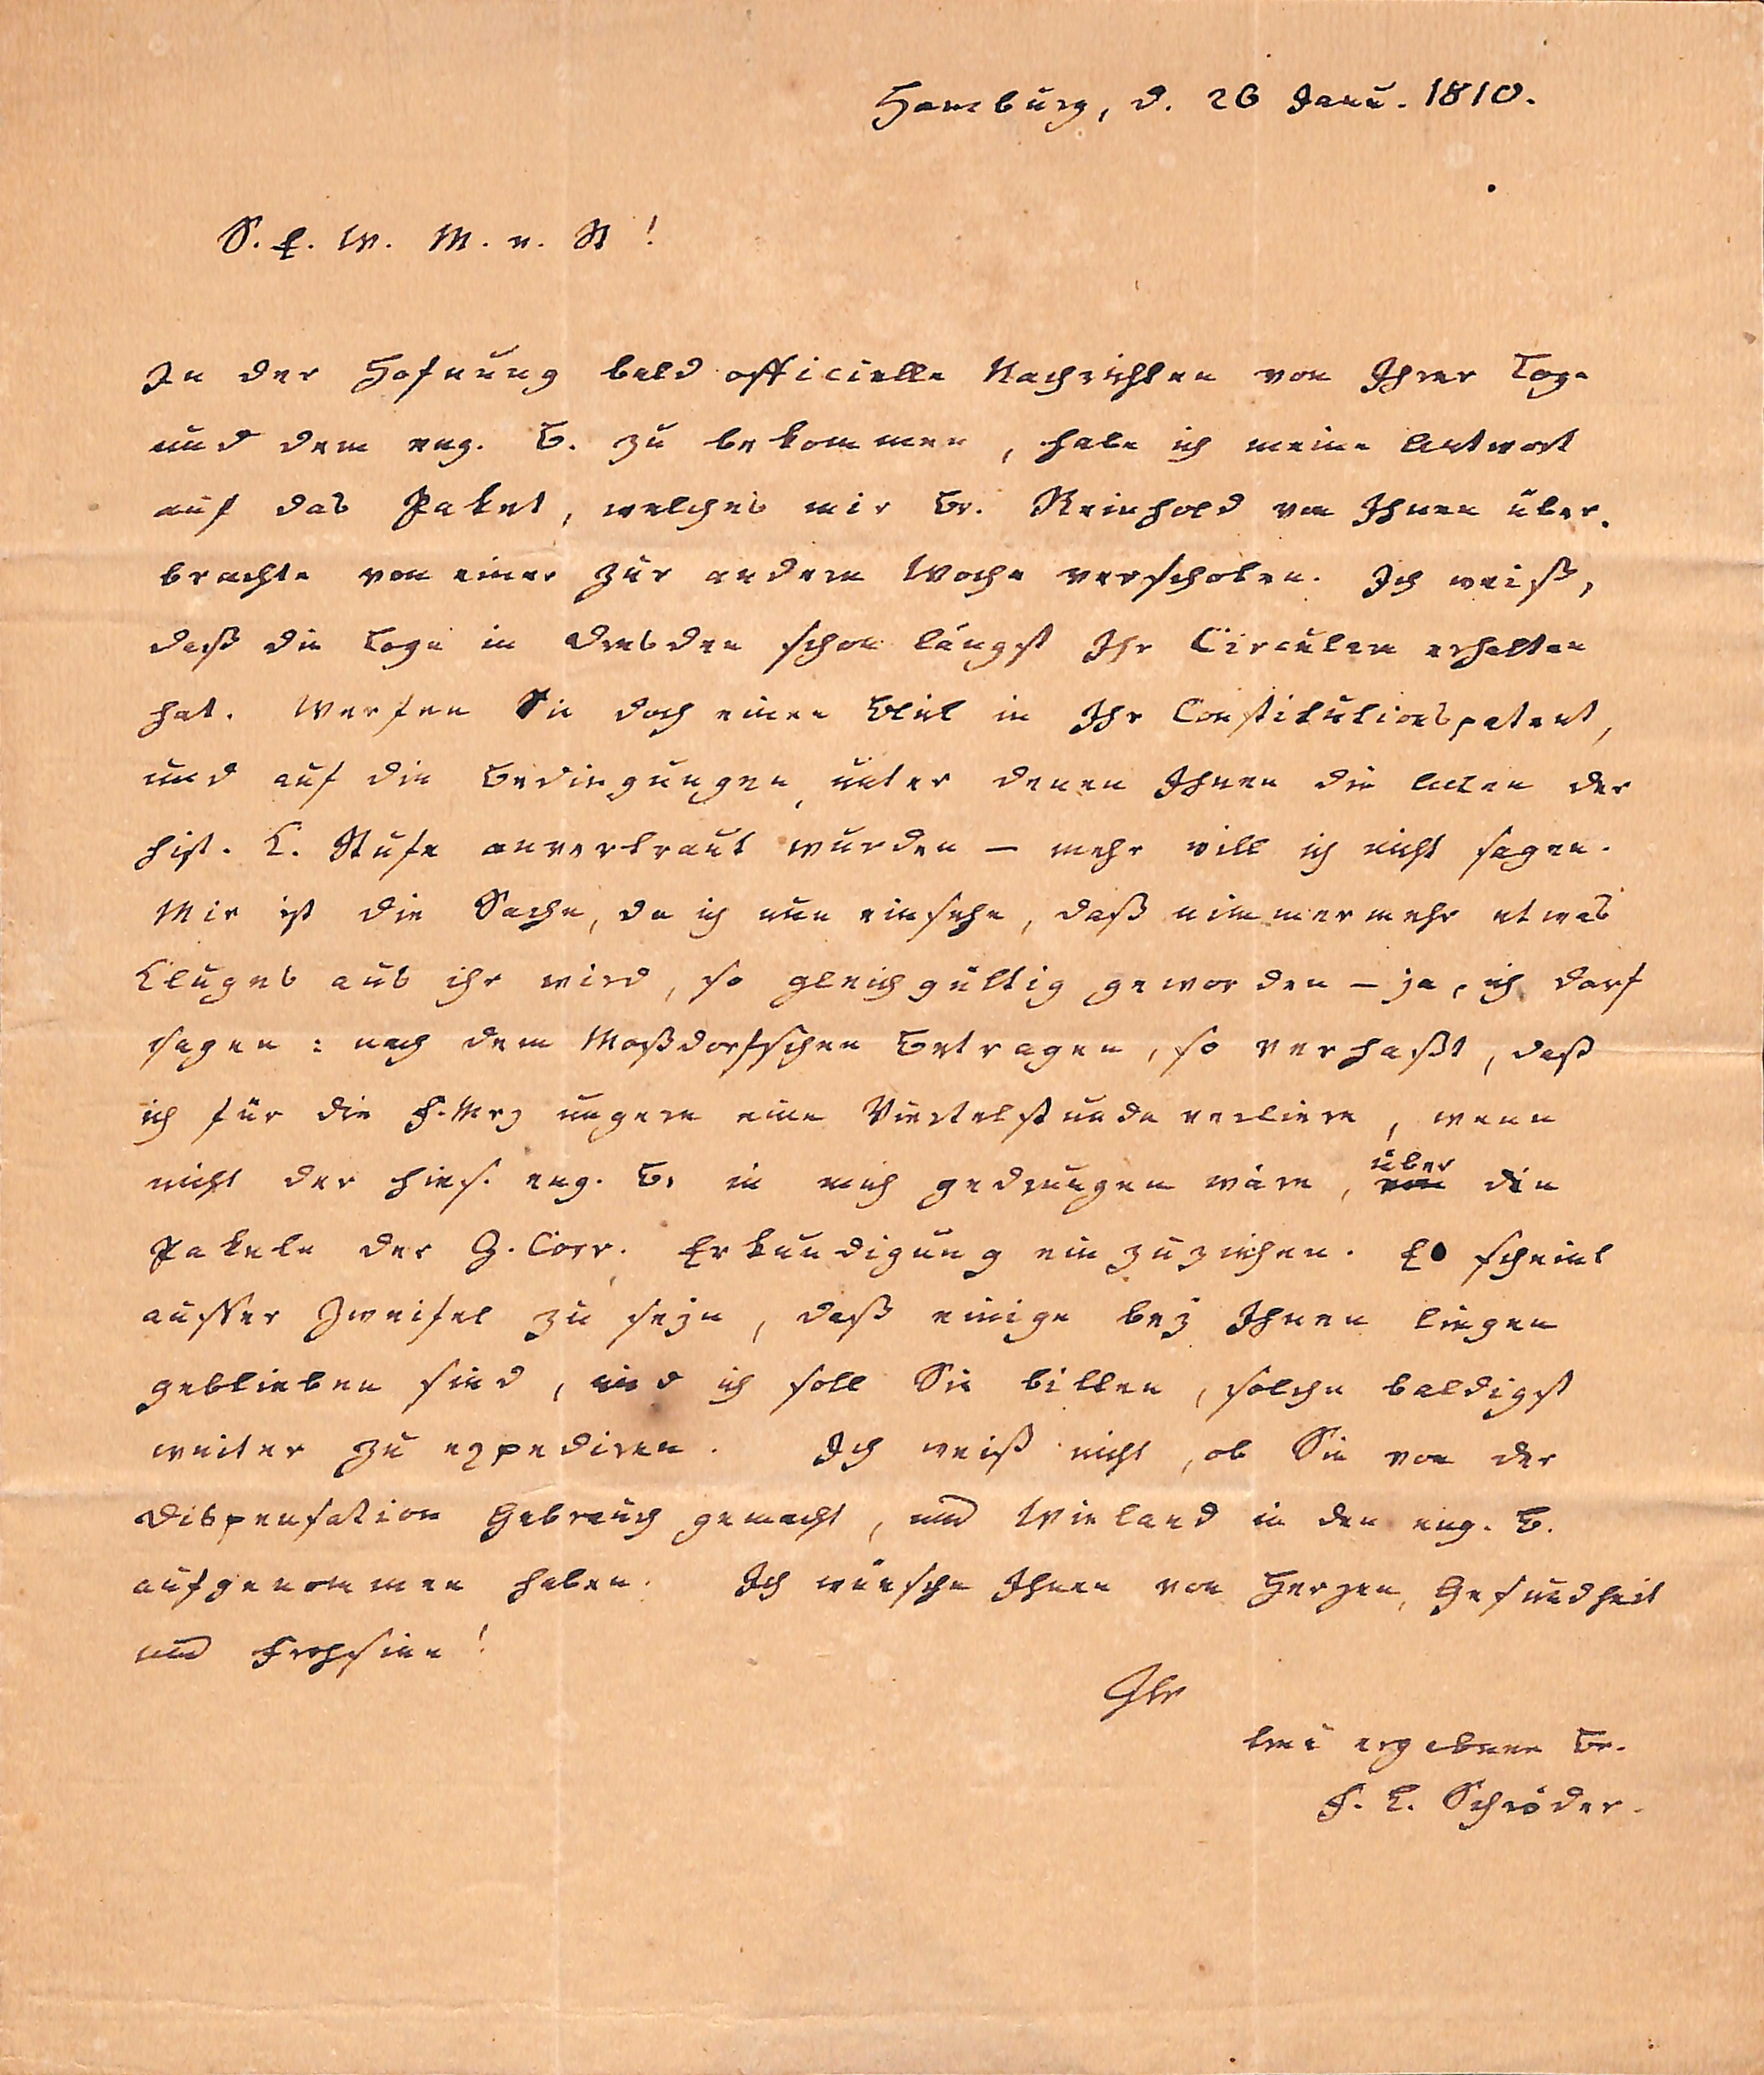 Hamburg, d. 26 Janu. 1810.
S. E. W. M. v. St!
In der Hofnung bald officielle Nachrichten von Ihrer Loge
und dem eng. B. zu bekommen, habe ich meine Antwort
auf das Paket, welches mir Br. Reinhold von Ihnen über-
brachte von einer zur andern Woche verschoben. Ich weiß,
daß die Loge in Dresden schon längst Ihr Circulare erhalten
hat. Werfen Sie doch einen Blik in Ihr Constitutionspatent,
und auf die Bedingungen, unter denen Ihnen die Acten der
hist. K. Stufe anvertraut wurden – mehr will ich nicht sagen.
Mir ist die Sache, da ich nun einsehe, daß nimmermehr etwas
Kluges aus ihr wird, so gleichgültig geworden – ja, ich darf
sagen: nach dem Moßdorfschen Betragen, so verhaßt, daß
ich für die F. Mrj ungern eine Viertelstunde verliere, wenn
nicht der hies. eng. B. in mich gedrungen wäre, über die
Pakete der G. Corr. Erkundigung einzuziehen. Es scheint
ausser Zweifel zu sejn, daß einige bej Ihnen liegen
geblieben sind, und ich soll Sie bitten, solche baldigst
weiter zu expediren. Ich weiß nicht, ob Sie von der
Dispensation Gebrauch gemacht, und Wieland in den eng. B.
aufgenommen haben. Ich wünsche Ihnen von Herzen, Gesundheit
und Frohsinn!
Ihr
treu ergebener Br.
F. L. Schröder.